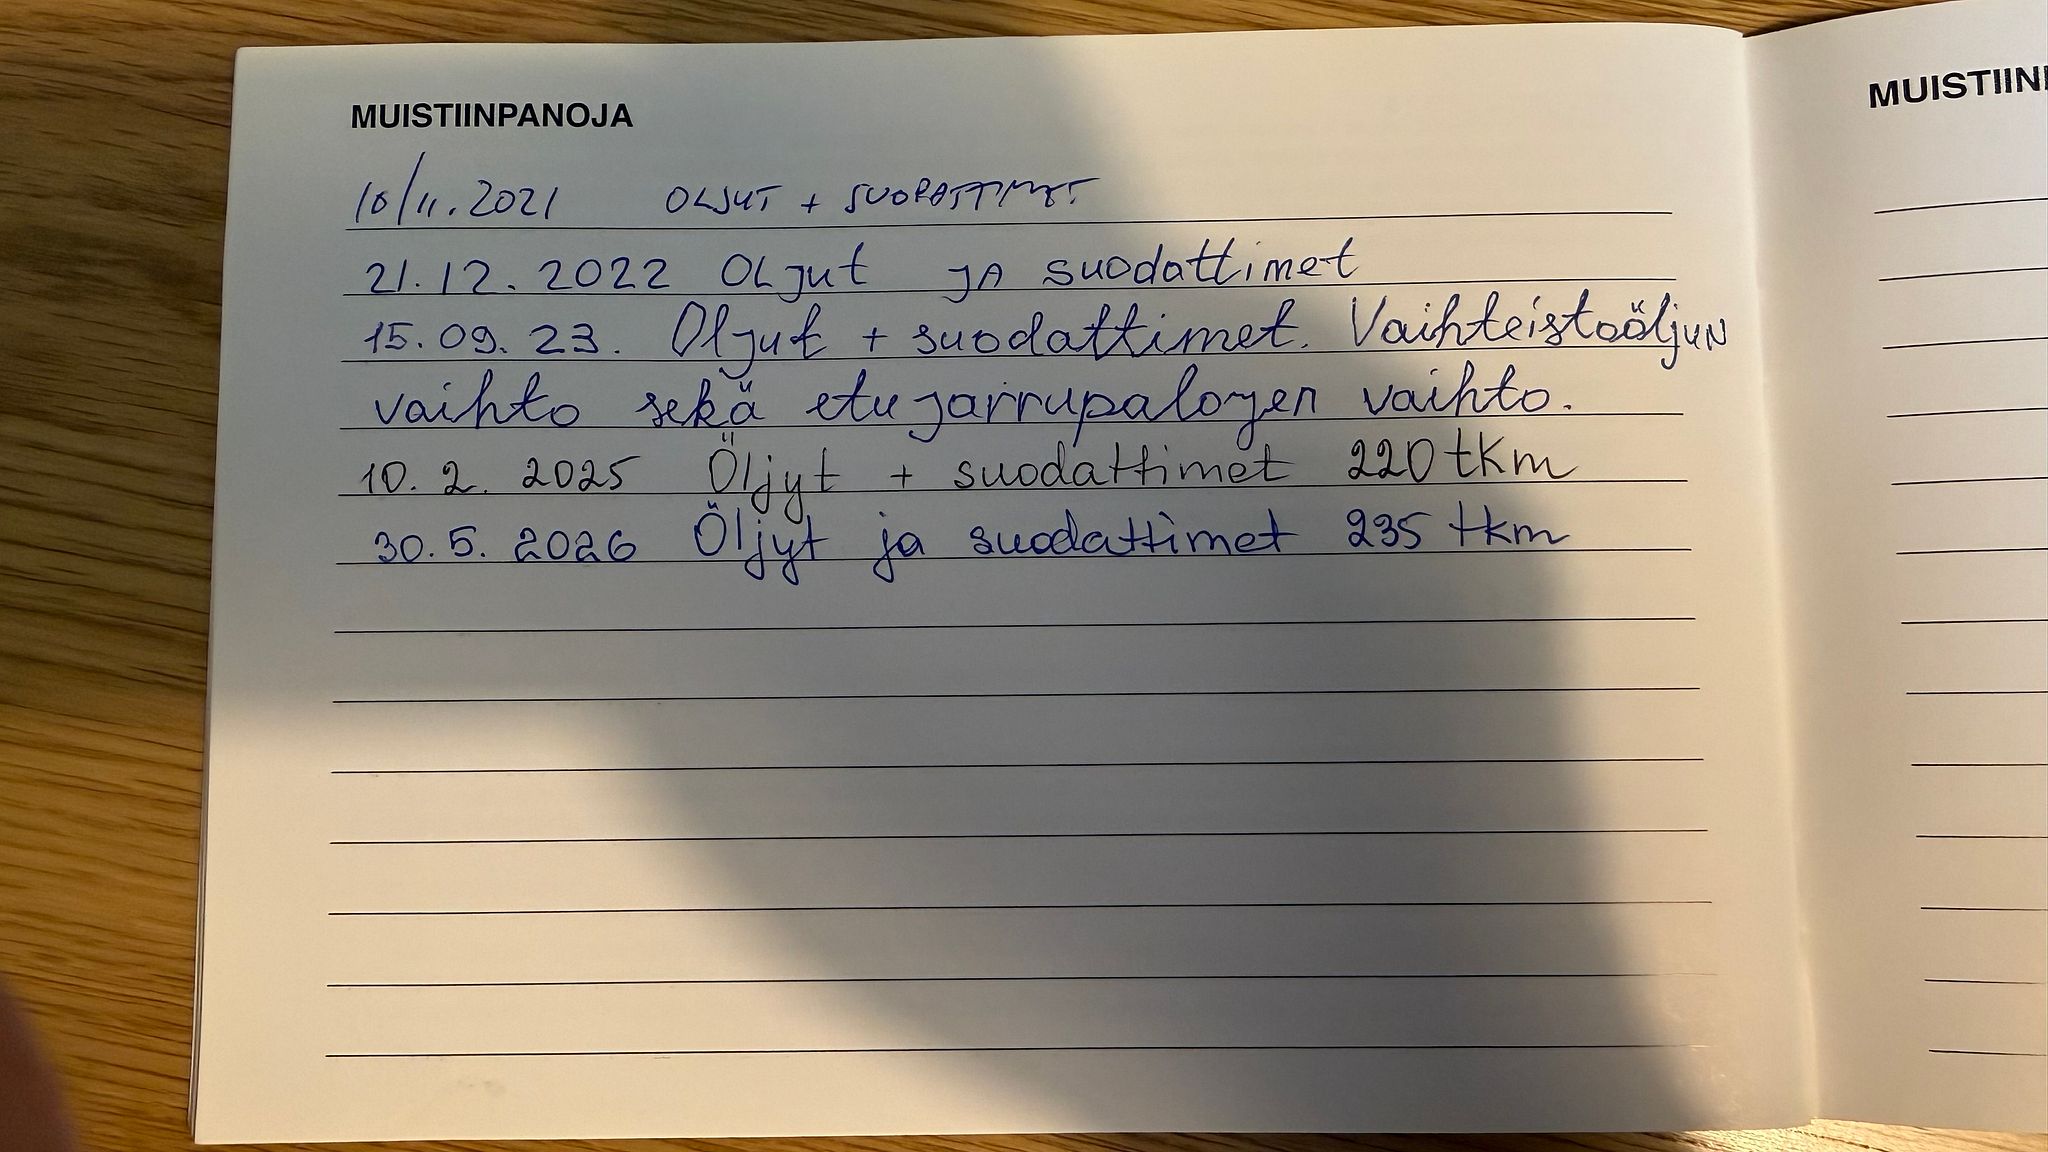 MUISTIINPANOJA
10/11.2021 OLJUT + SUODATTIMET
21.12.2022 OLjut JA suodattimet
15.09.23. Oljut + suodattimet. Vaihteistoöljun
vaihto sekä etujarrupalojen vaihto.
10.2.2025 Öljyt + suodattimet 220 tkm
30.5.2026 Öljyt ja suodattimet 235 tkm
MUISTIIN